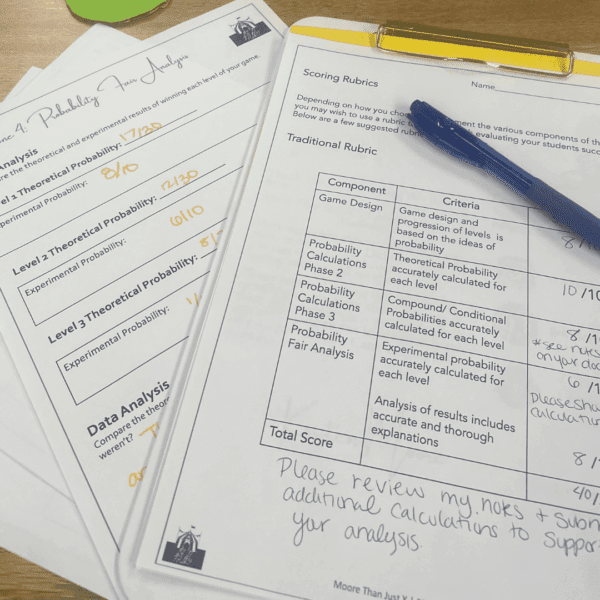 Probability Fair Analysis
Analysis
the theoretical and experimental results of winning each level of your game.
Theoretical Probability: 17/30
Experimental Probability: 8/10
Level 2 Theoretical Probability: 12/30
Experimental Probability: 6/10
Level 3 Theoretical Probability:
Experimental Probability:
Data Analysis
Compare the
weren't?
Scoring Rubrics
Name
Depending on how you the various components of
you may wish to use a rubric evaluating your students
Below are a few suggested
Traditional Rubric
Component Criteria
Game Design Game design and
progression of levels is
based on the ideas of
probability
8/
Probability
Calculations
Phase 2
Theoretical Probability
accurately calculated for
each level
10/10
Probability
Calculations
Phase 3
Compound/ Conditional
Probabilities accurately
calculated for each level
8/1
*see notes
on your
Probability
Fair Analysis
Experimental probability
accurately calculated for
each level
6/1
Please
Analysis of results includes
accurate and thorough
explanations
8/
Total Score 40/
Please review my notes +
additional calculations to
your analysis.
Moore Than Just X